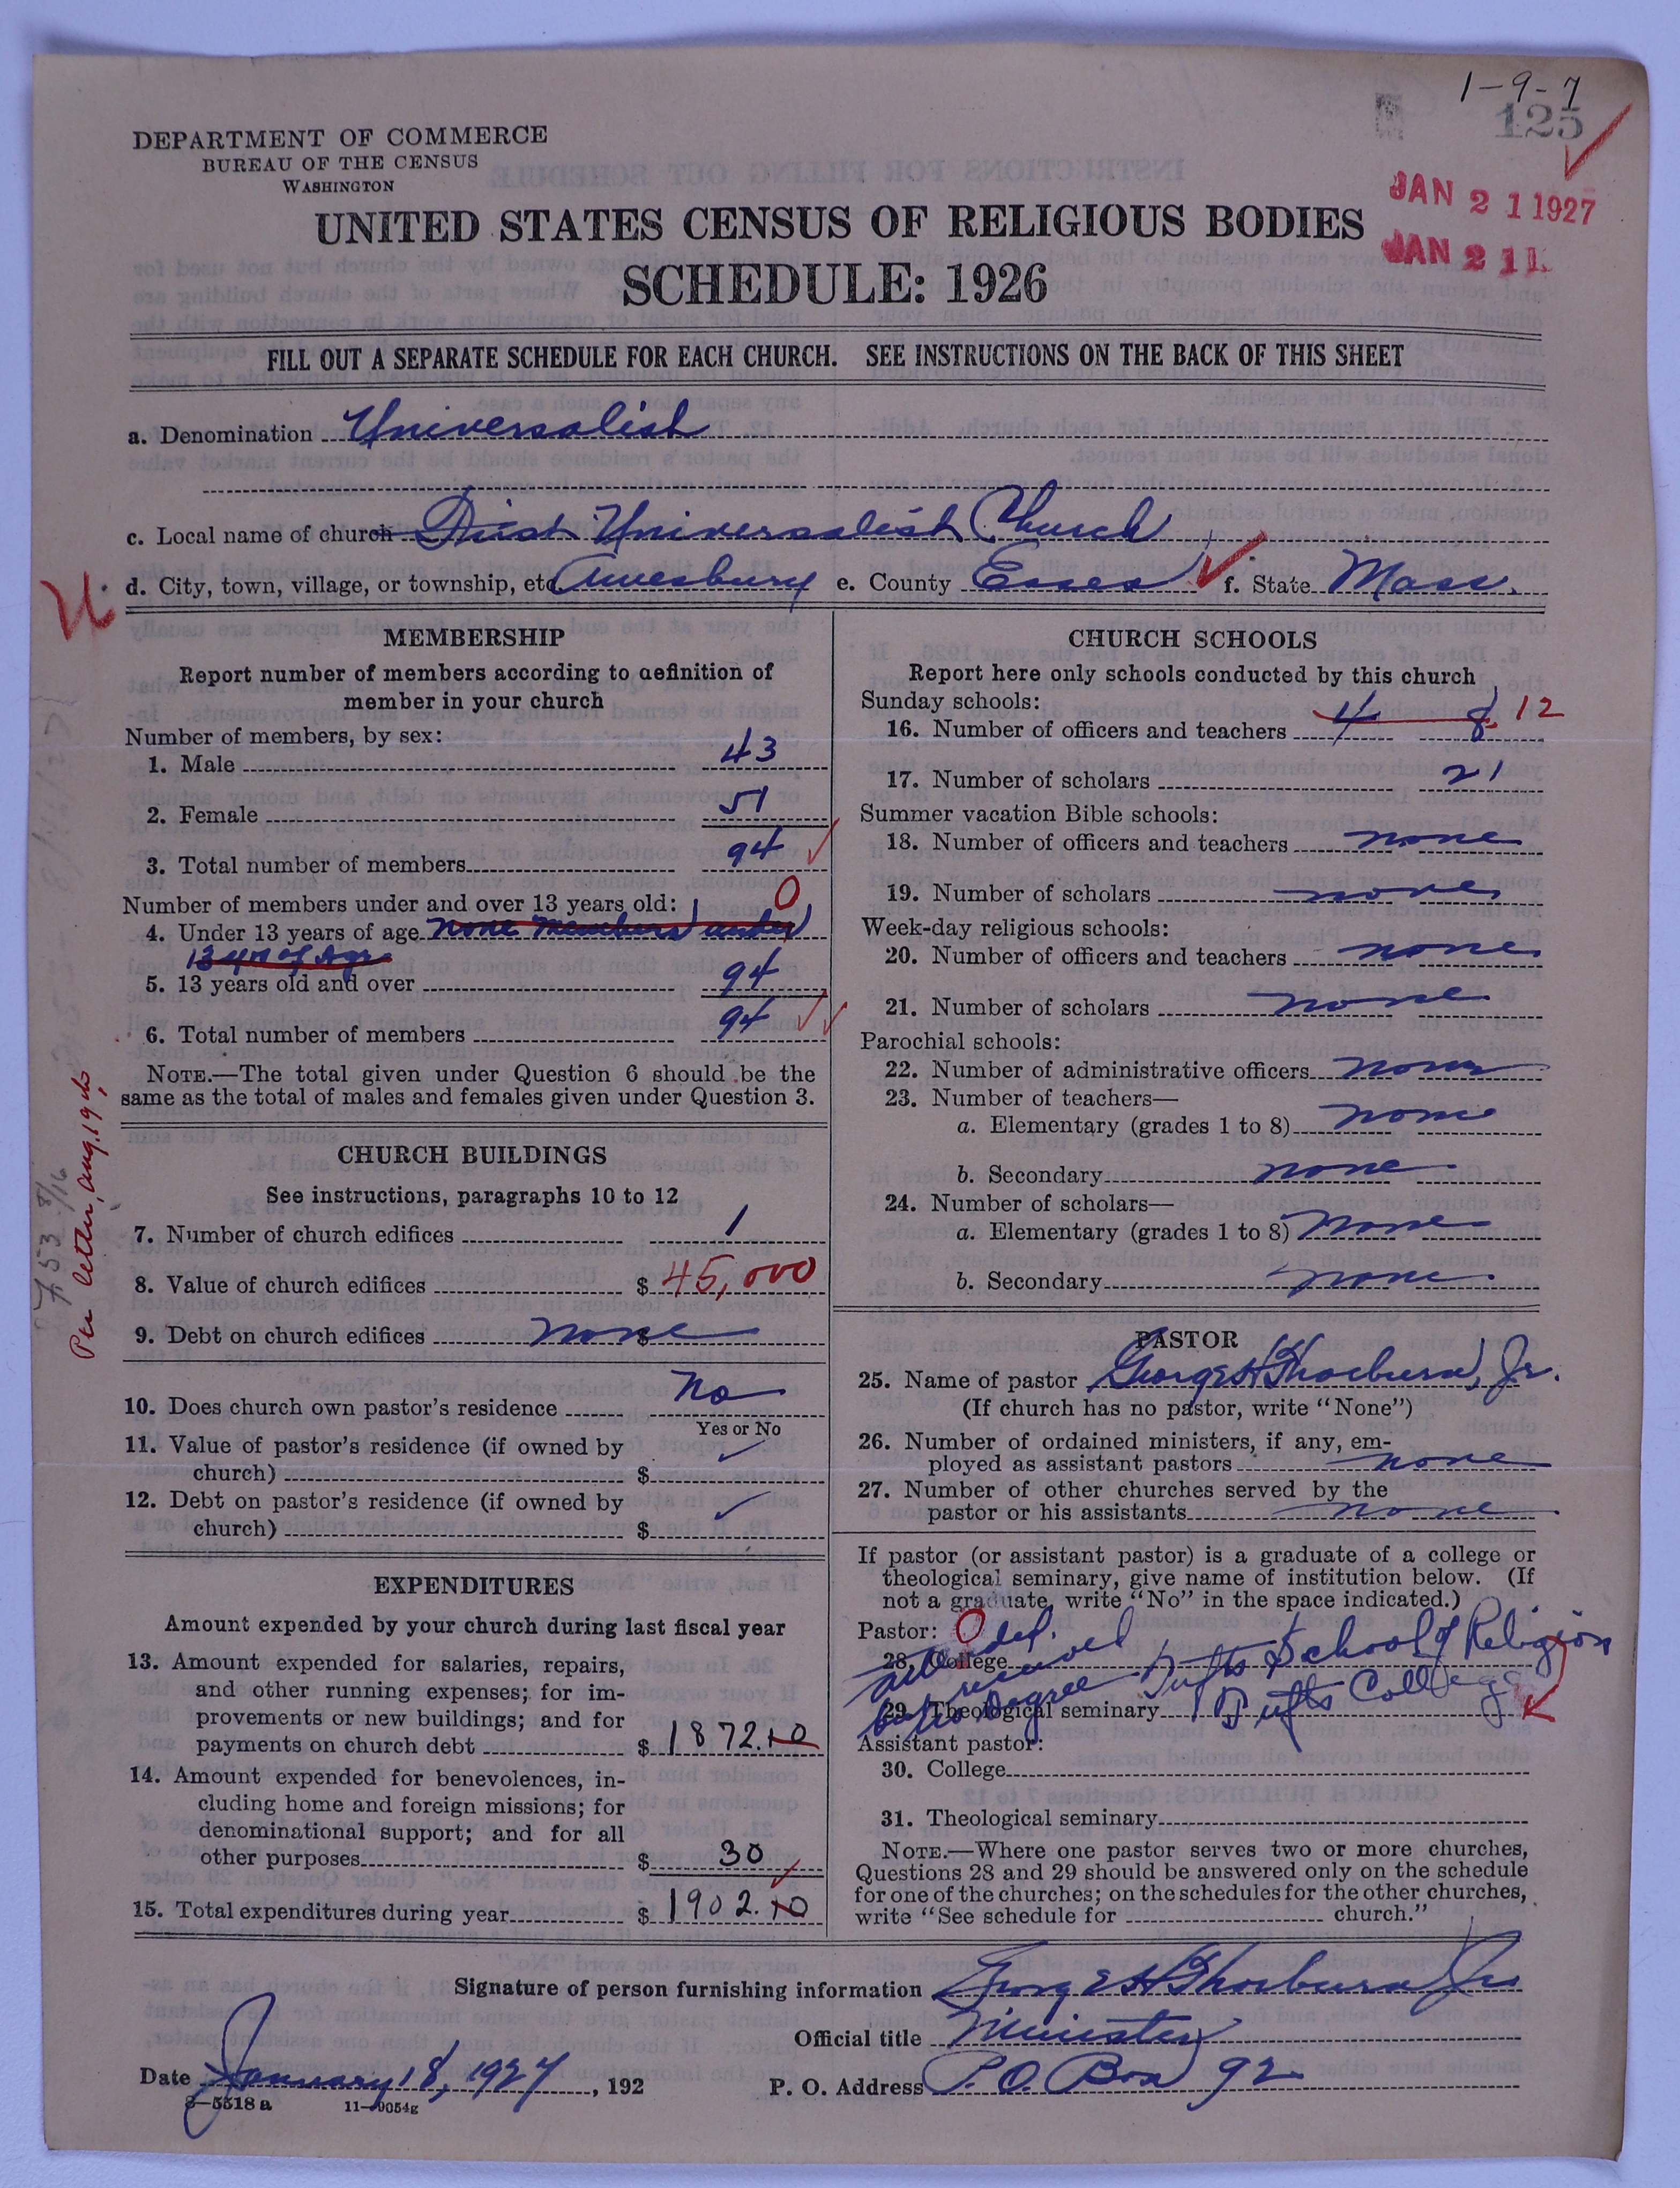 1-9-7
125
DEPARTMENT OF COMMERCE
BUREAU OF THE CENSUS
WASHINGTON
JAN 21 1927
JAN 21
UNITED STATES CENSUS OF RELIGIOUS BODIES
SCHEDULE: 1926
FILL OUT A SEPARATE SCHEDULE FOR EACH CHURCH. SEE INSTRUCTIONS ON THE BACK OF THIS SHEET
a. Denomination Universalist
c. Local name of church First Universalist Church
d. City, town, village, or township, etc Amesbury e. County Essex f. State Mass.
MEMBERSHIP
Report number of members according to definition of
member in your church
Number of members, by sex:
1. Male 43
2. Female 51
3. Total number of members 94
Number of members under and over 13 years old: 0
4. Under 13 years of age none members under
13 yrs of Age
5. 13 years old and over 94
6. Total number of members 94
NOTE.—The total given under Question 6 should be the
same as the total of males and females given under Question 3.
Per letter, Aug. 19
CHURCH BUILDINGS
See instructions, paragraphs 10 to 12
7. Number of church edifices 1
8. Value of church edifices $ 45,000
9. Debt on church edifices $ none
10. Does church own pastor's residence No
Yes or No
11. Value of pastor's residence (if owned by
church) $
12. Debt on pastor's residence (if owned by
church) $
EXPENDITURES
Amount expended by your church during last fiscal year
13. Amount expended for salaries, repairs,
and other running expenses; for im-
provements or new buildings; and for
payments on church debt $ 1872.10
14. Amount expended for benevolences, in-
cluding home and foreign missions; for
denominational support; and for all
other purposes $ 30
15. Total expenditures during year $ 1902.10
CHURCH SCHOOLS
Report here only schools conducted by this church
Sunday schools:
16. Number of officers and teachers 4 8 12
17. Number of scholars 21
Summer vacation Bible schools:
18. Number of officers and teachers none
19. Number of scholars none
Week-day religious schools:
20. Number of officers and teachers none
21. Number of scholars none
Parochial schools:
22. Number of administrative officers none
23. Number of teachers—
a. Elementary (grades 1 to 8) none
b. Secondary none
24. Number of scholars—
a. Elementary (grades 1 to 8) none
b. Secondary none
PASTOR
25. Name of pastor George H Thorburn, Jr.
(If church has no pastor, write "None")
26. Number of ordained ministers, if any, em-
ployed as assistant pastors none
27. Number of other churches served by the
pastor or his assistants none
If pastor (or assistant pastor) is a graduate of a college or
theological seminary, give name of institution below. (If
not a graduate, write "No" in the space indicated.)
Pastor: 0
28. College
Tufts School of Religion
29. Theological seminary Tufts College
but no Degree
Assistant pastor:
30. College
31. Theological seminary
NOTE.—Where one pastor serves two or more churches,
Questions 28 and 29 should be answered only on the schedule
for one of the churches; on the schedules for the other churches,
write "See schedule for church."
Signature of person furnishing information George H Thorburn Jr
Official title Minister
Date January 18, 1927, 192 P. O. Address P.O. Box 92
8—5518 a 11—9054g